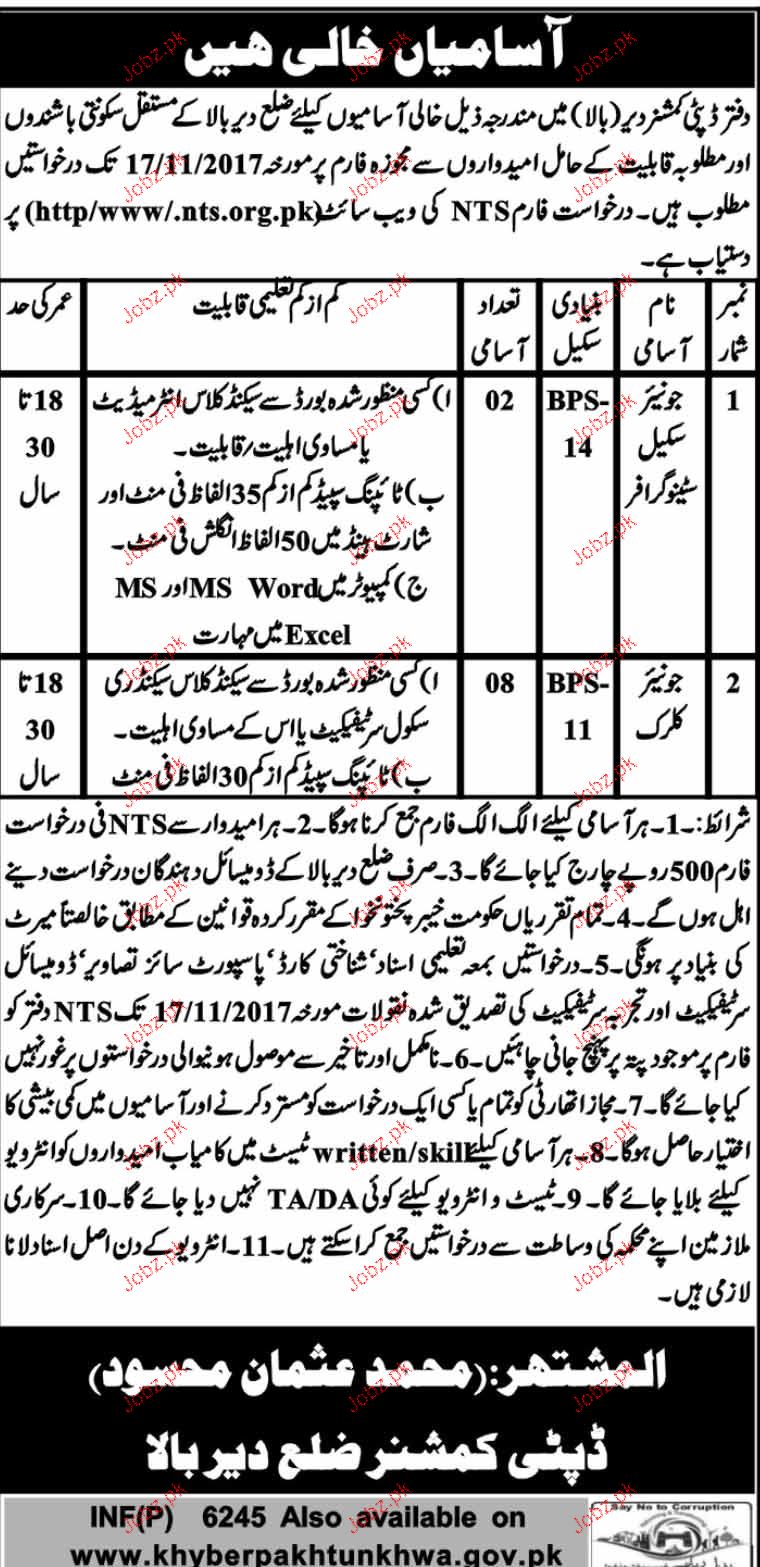 آسامیاں خالی ھیں
دفتر ڈپٹی کمشنر دیر (بالا) میں مندرجہ ذیل خالی آسامیوں کیلئے ضلع دیر بالا کے مستقل سکونتی باشندوں
اور مطلوبہ قابلیت کے حامل امیدواروں سے مجوزہ فارم پر مورخہ 17/11/2017 تک درخواستیں
مطلوب ہیں۔ درخواست فارم NTS کی ویب سائٹ (http/www/.nts.org.pk) پر
دستیاب ہے۔
نمبر شمار
نام آسامی
بنیادی سکیل
تعداد آسامی
کم از کم تعلیمی قابلیت
عمر کی حد
1
جونیئر
سکیل
سٹینوگرافر
BPS-
14
02
ا) کسی منظور شدہ بورڈ سے سیکنڈ کلاس انٹرمیڈیٹ
یا مساوی اہلیت/قابلیت۔
ب) ٹائپنگ سپیڈ کم از کم 35 الفاظ فی منٹ اور
شارٹ ہینڈ میں 50 الفاظ انگلش فی منٹ۔
ج) کمپیوٹر میں MS Word اور MS
Excel میں مہارت
18 تا
30
سال
2
جونیئر
کلرک
BPS-
11
08
ا) کسی منظور شدہ بورڈ سے سیکنڈ کلاس سیکنڈری
سکول سرٹیفیکیٹ یا اس کے مساوی اہلیت۔
ب) ٹائپنگ سپیڈ کم از کم 30 الفاظ فی منٹ
18 تا
30
سال
شرائط:۔1۔ہر آسامی کیلئے الگ الگ فارم جمع کرنا ہوگا۔2۔ہر امیدوار سے NTS فی درخواست
فارم 500 روپے چارج کیا جائے گا۔3۔صرف ضلع دیر بالا کے ڈومیسائل دہندگان درخواست دینے
اہل ہوں گے۔4۔تمام تقرریاں حکومت خیبر پختونخوا کے مقرر کردہ قوانین کے مطابق خالصتاً میرٹ
کی بنیاد پر ہونگی۔5۔درخواستیں بمعہ تعلیمی اسناد، شناختی کارڈ، پاسپورٹ سائز تصاویر، ڈومیسائل
سرٹیفیکیٹ اور تجربہ سرٹیفیکیٹ کی تصدیق شدہ نقولات مورخہ 17/11/2017 تک NTS دفتر کو
فارم پر موجود پتہ پر پہنچ جانی چاہئیں۔6۔نامکمل اور تاخیر سے موصول ہونیوالی درخواستوں پر غور نہیں
کیا جائے گا۔7۔مجاز اتھارٹی کو تمام یا کسی ایک درخواست کو مسترد کرنے اور آسامیوں میں کمی بیشی کا
اختیار حاصل ہوگا۔8۔ہر آسامی کیلئے written/skill ٹیسٹ میں کامیاب امیدواروں کو انٹرویو
کیلئے بلایا جائے گا۔9۔ٹیسٹ و انٹرویو کیلئے کوئی TA/DA نہیں دیا جائے گا۔10۔سرکاری
ملازمین اپنے محکمہ کی وساطت سے درخواستیں جمع کراسکتے ہیں۔11۔انٹرویو کے دن اصل اسناد لانا
لازمی ہیں۔
المشتھر: (محمد عثمان محسود)
ڈپٹی کمشنر ضلع دیر بالا
INF(P) 6245 Also available on
www.khyberpakhtunkhwa.gov.pk
Say No to Corruption
Jobz.pk